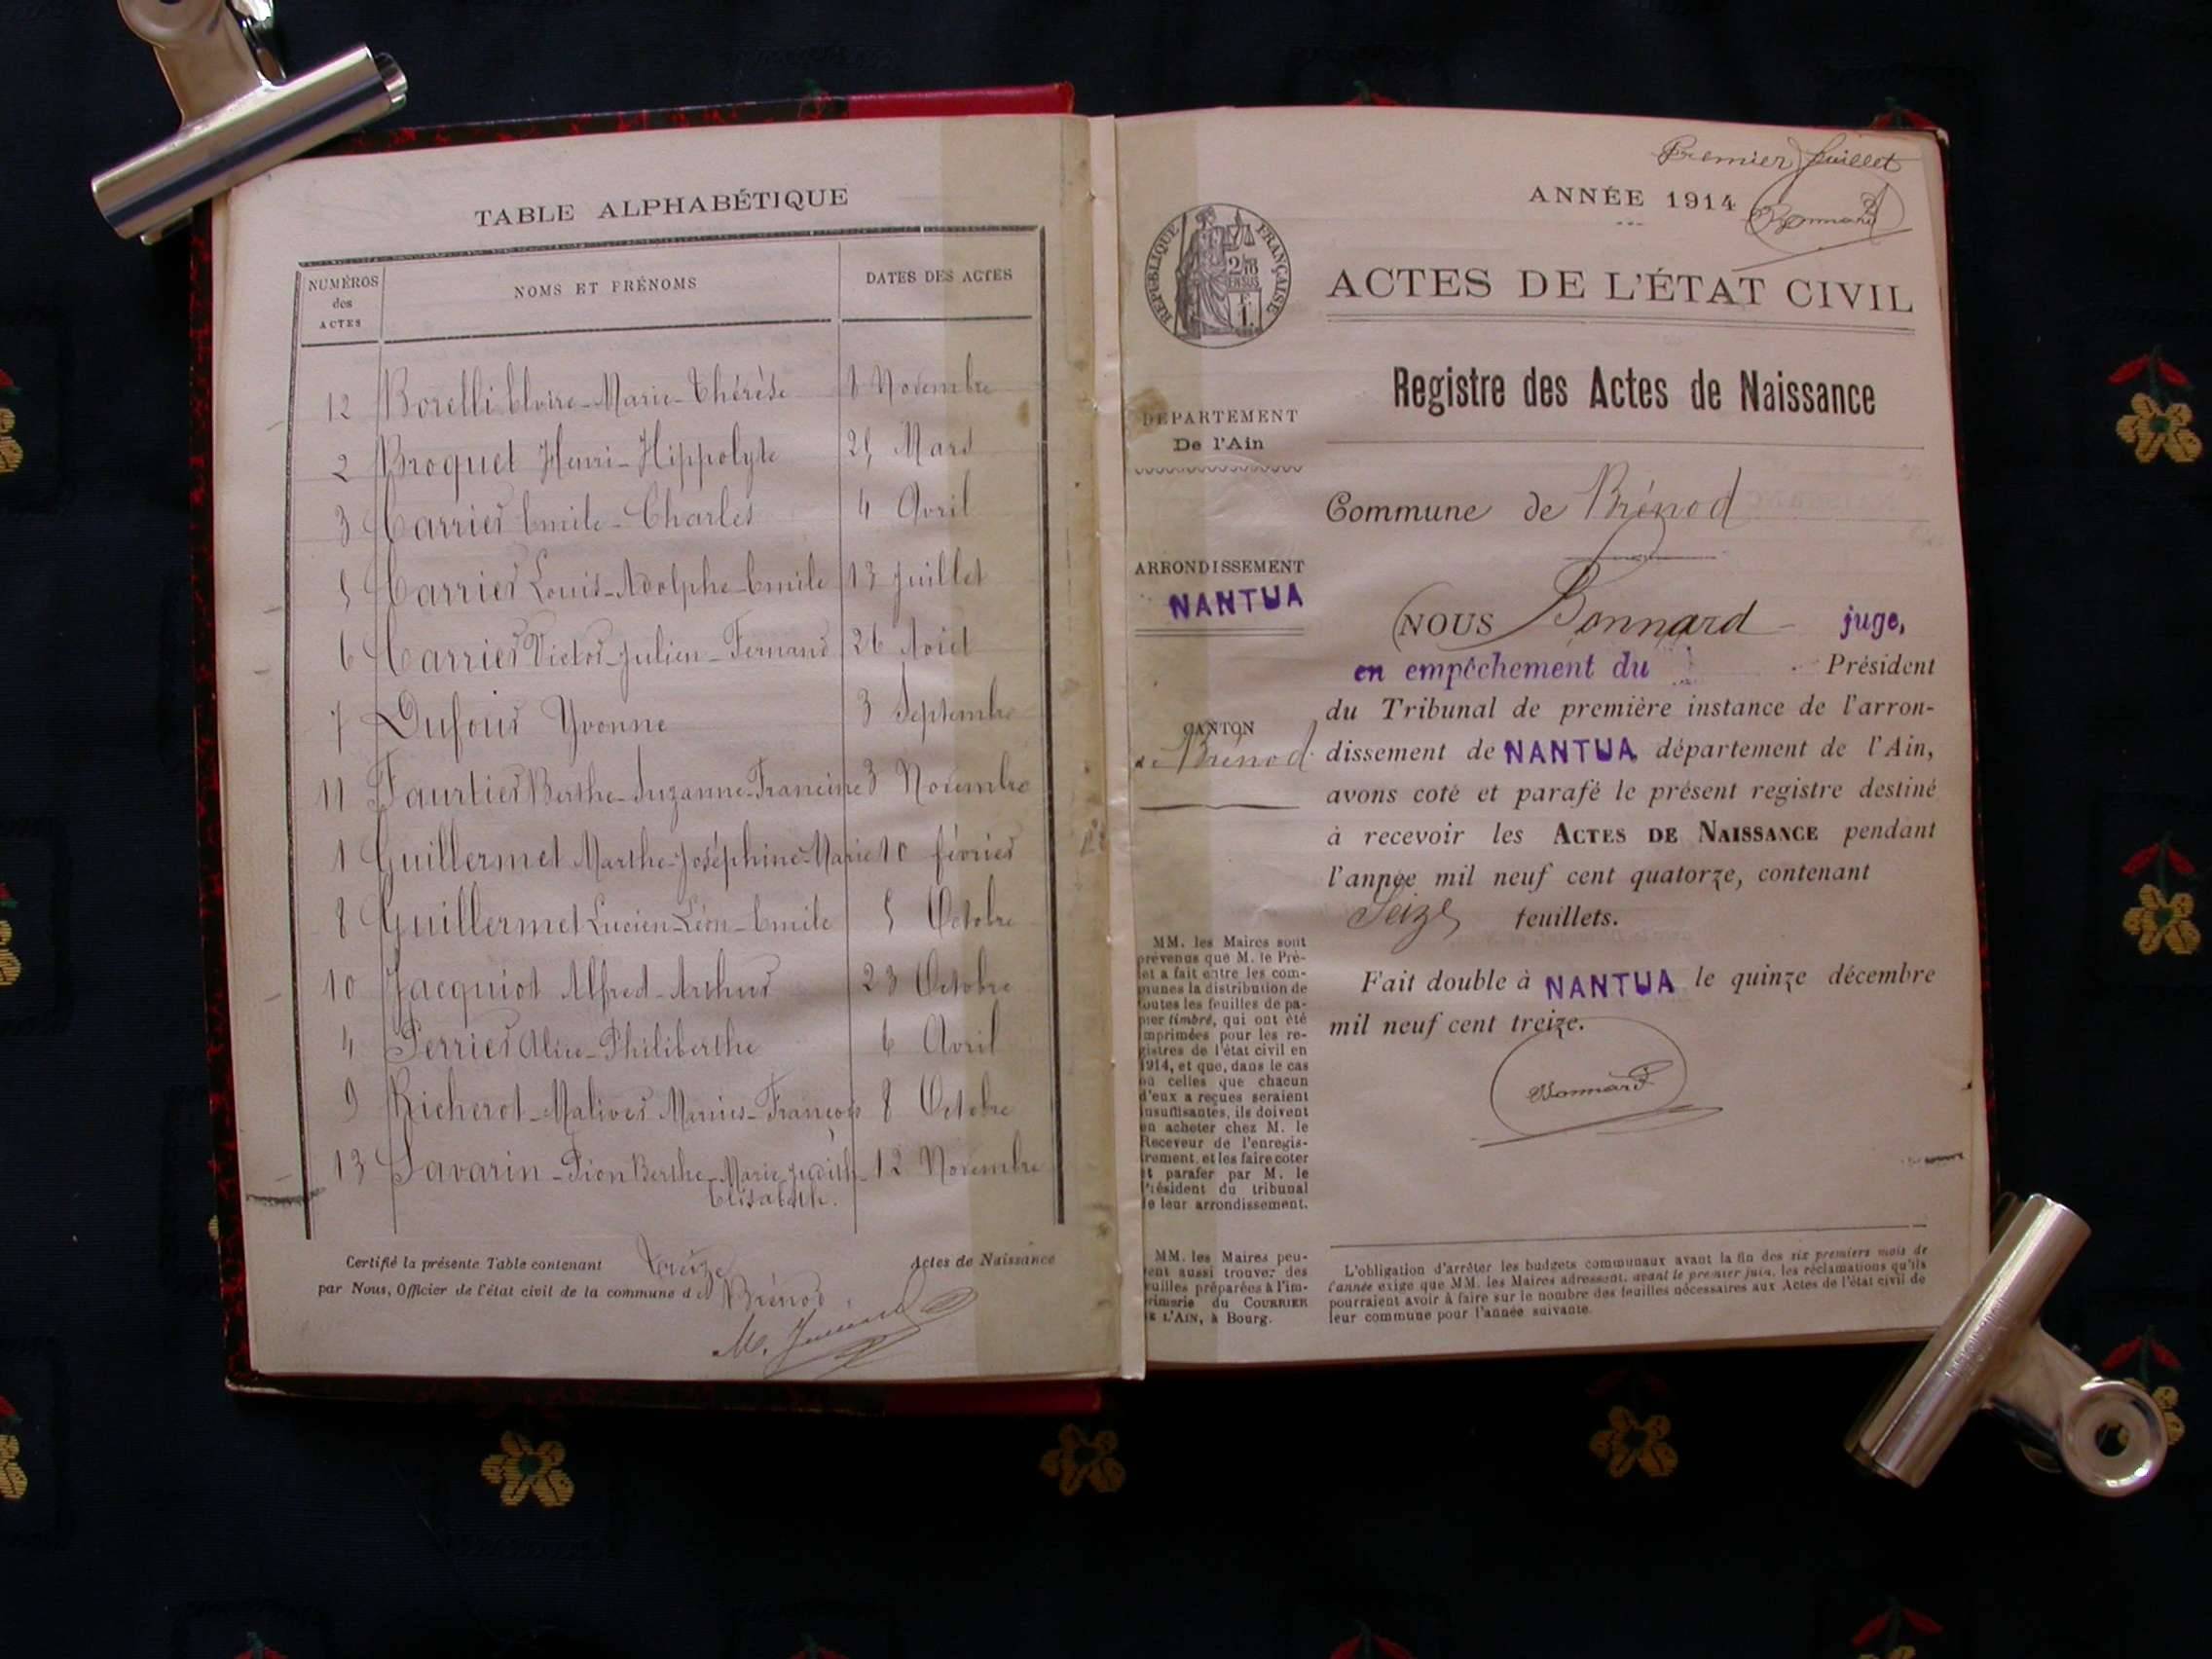 TABLE ALPHABÉTIQUE
NUMÉROS des ACTES
NOMS ET PRÉNOMS
DATES DES ACTES
12 Borelli Marie-Thérèse 8 Novembre
2 Broquet Henri-Hippolyte 25 Mars
3 Carrier Emile-Charles 4 Avril
5 Carrier Louis-Adolphe-Emile 13 Juillet
6 Carrier Victor-Julien-Fernand 26 Août
7 Dufour Yvonne 3 Septembre
11 Faurtier Berthe-Suzanne-Francine 3 Novembre
1 Guillermet Marthe-Joséphine-Marie 10 février
8 Guillermet Lucien-Léon-Emile 5 Octobre
10 Jacquiot Alfred-Arthur 23 Octobre
4 Perrier Alice-Philiberthe 6 Avril
9 Richerot-Malivers Marius-François 8 Octobre
13 Savarin-Pion Berthe-Marie-Judith- 12 Novembre
Elisabeth.
Certifié la présente Table contenant treize Actes de Naissance
par Nous, Officier de l'état civil de la commune de Brénod
Premier feuillet
ANNÉE 1914 Bonnard
RÉPUBLIQUE FRANÇAISE
ACTES DE L'ÉTAT CIVIL
Registre des Actes de Naissance
DÉPARTEMENT
De l'Ain
Commune de Brénod
ARRONDISSEMENT
NANTUA
CANTON
de Brénod
NOUS Bonnard juge,
en empêchement du Président
du Tribunal de première instance de l'arron-
dissement de NANTUA département de l'Ain,
avons coté et parafé le présent registre destiné
à recevoir les ACTES DE NAISSANCE pendant
l'année mil neuf cent quatorze, contenant
Seize feuillets.
Fait double à NANTUA le quinze décembre
mil neuf cent treize.
Bonnard
MM. les Maires sont
prévenus que M. le Pré-
fet a fait entre les com-
munes la distribution de
toutes les feuilles de pa-
pier timbré, qui ont été
imprimées pour les re-
gistres de l'état civil en
1914, et que, dans le cas
où celles que chacun
d'eux a reçues seraient
insuffisantes, ils doivent
en acheter chez M. le
Receveur de l'enregis-
trement, et les faire coter
et parafer par M. le
Président du tribunal
de leur arrondissement.
MM. les Maires peu-
vent aussi trouver des
feuilles préparées à l'im-
primerie du COURRIER
DE L'AIN, à Bourg.
L'obligation d'arrêter les budgets communaux avant la fin des six premiers mois de
l'année exige que MM. les Maires adressent, avant le premier juin, les réclamations qu'ils
pourraient avoir à faire sur le nombre des feuilles nécessaires aux Actes de l'état civil de
leur commune pour l'année suivante.